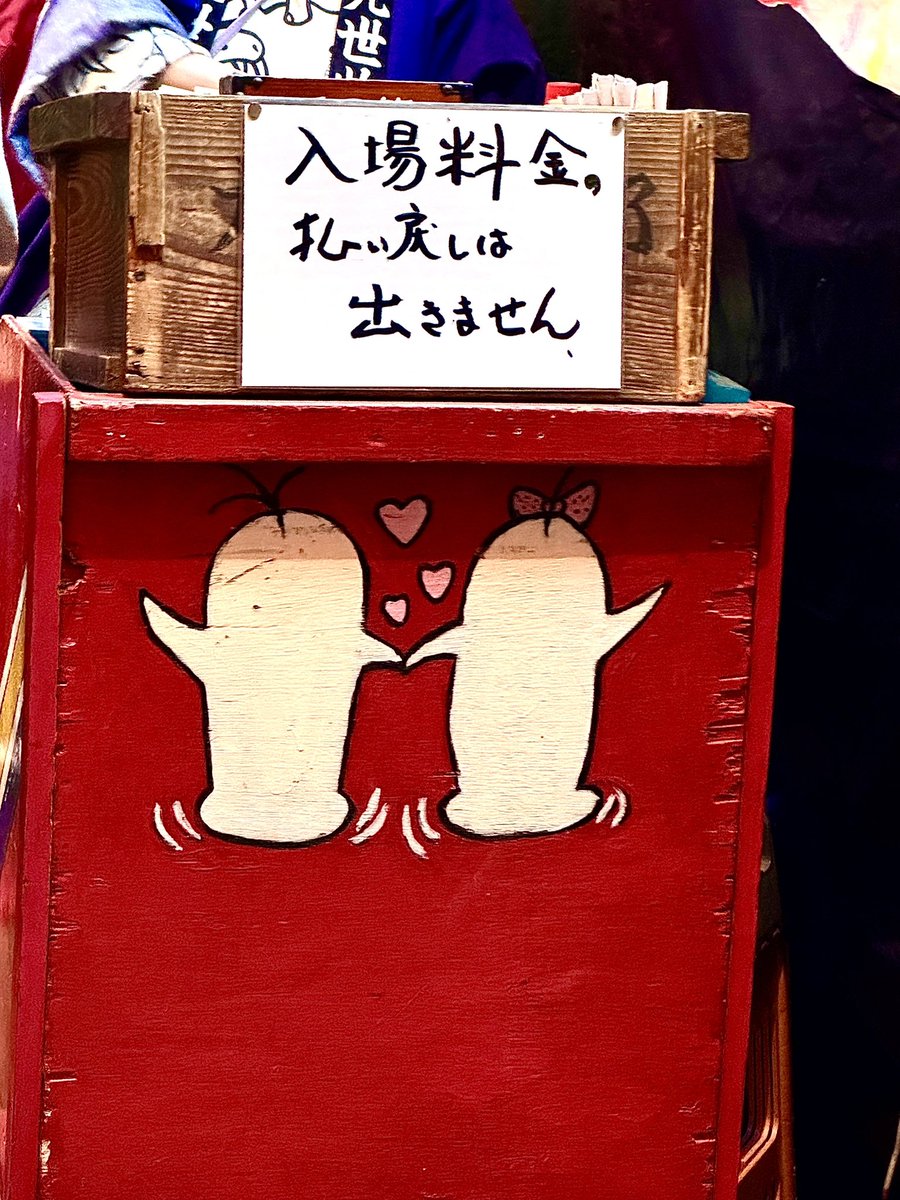 見世
入場料金、
払い戻しは
出きません、